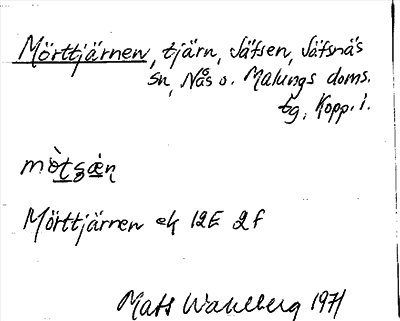 Mörttjärnen, tjärn, Säfsen, Säfsnäs
sn, Nås o. Malungs doms.
tg, Kopp. l.
Mörttjärnen ek 12E 2f
Mats Wahlberg 1971